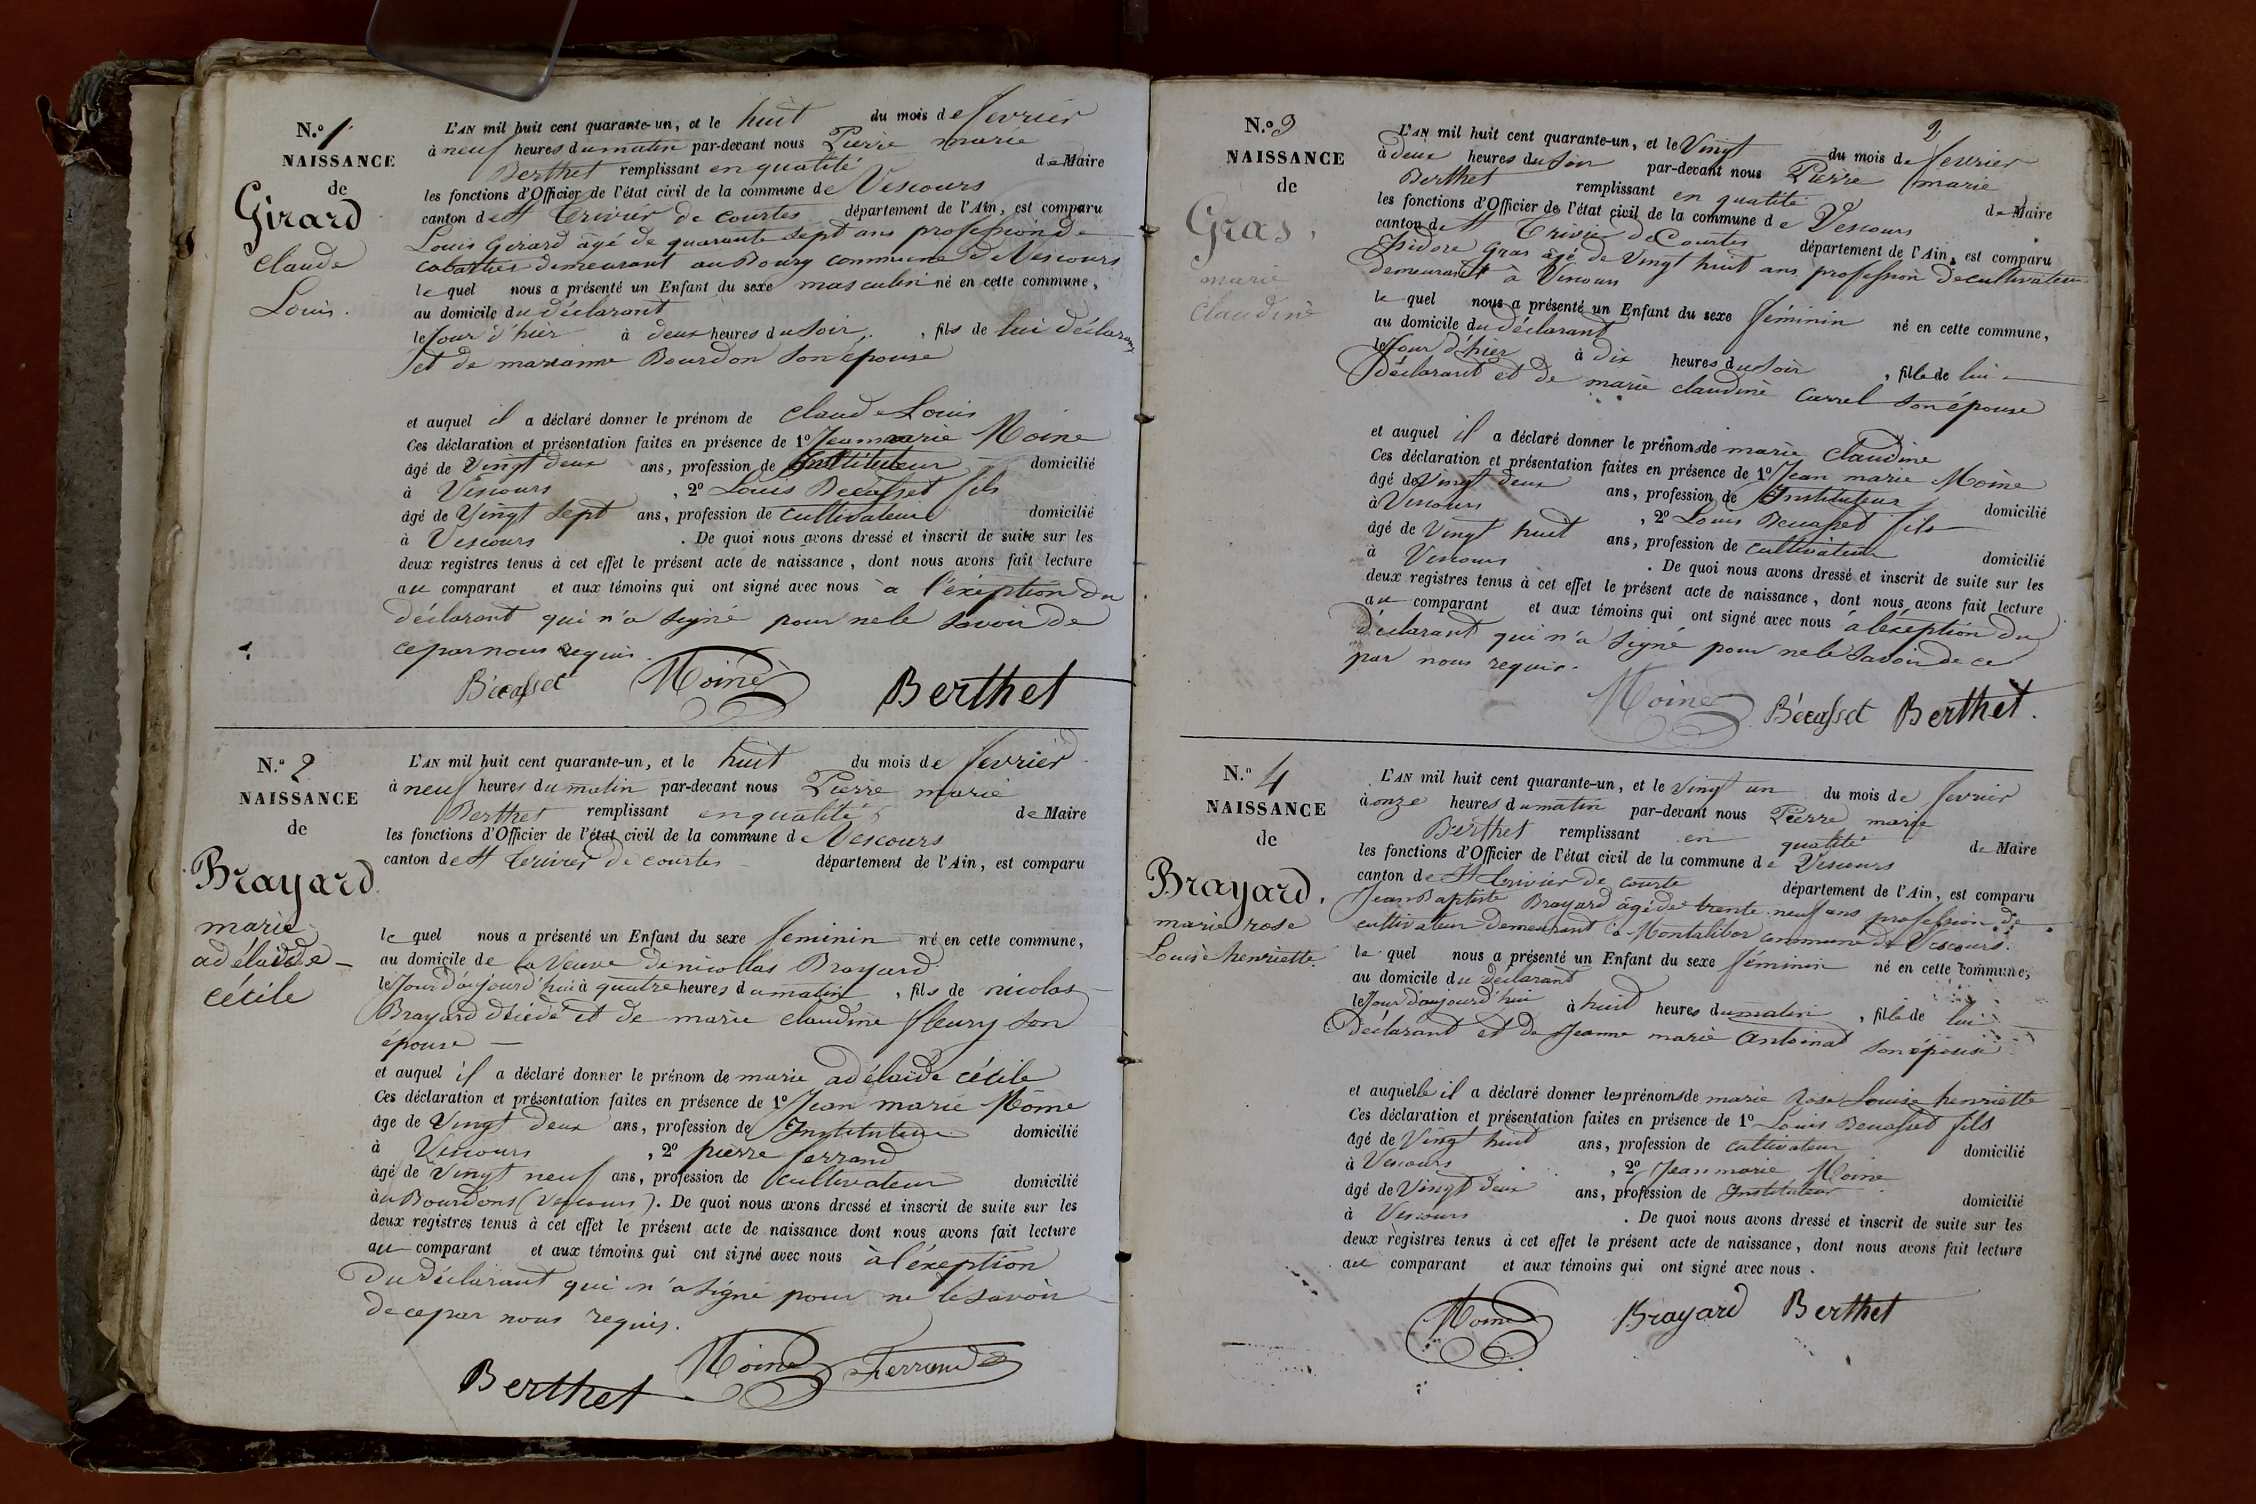 N.o 1
NAISSANCE
de
Girard
Claude
Louis.
L'AN mil huit cent quarante-un, et le huit du mois de fevrier
à neuf heures du matin par-devant nous Pierre marie
Berthet remplissant en qualité de Maire
les fonctions d'Officier de l'état civil de la commune de Vescours
canton de St Trivier de Courtes département de l'Ain, est comparu
Louis Girard âgé de quarante sept ans profession de
cabartier demeurant au Bourg commune de Vescours
le quel nous a présenté un Enfant du sexe masculin né en cette commune,
au domicile du déclarant
le Jour d'hier à deux heures du soir, fils de lui déclarant
et de marianne Bourdon son épouse
et auquel il a déclaré donner le prénom de Claude Louis
Ces déclaration et présentation faites en présence de 1o Jean marie Moine
âgé de Vingt deux ans, profession de Instituteur domicilié
à Vescours , 2o Louis Bécasset fils
âgé de Vingt sept ans, profession de cultivateur domicilié
à Vescours . De quoi nous avons dressé et inscrit de suite sur les
deux registres tenus à cet effet le présent acte de naissance, dont nous avons fait lecture
au comparant et aux témoins qui ont signé avec nous à l'éxéption du
déclarant qui n'a signé pour ne le savoir de
ce par nous requis.
Bécasset Moine Berthet
N.o 2
NAISSANCE
de
Brayard
marie
adélaïde
cécile
L'AN mil huit cent quarante-un, et le huit du mois de fevrier
à neuf heures du matin par-devant nous Pierre marie
Berthet remplissant en qualité de Maire
les fonctions d'Officier de l'état civil de la commune de Vescours
canton de St Trivier de Courtes département de l'Ain, est comparu
le quel nous a présenté un Enfant du sexe feminin né en cette commune,
au domicile de la Veuve de nicollas Brayard
le Jour d'aujourd'hui à quatre heures du matin, fils de nicolas
Brayard décédé et de marie claudine fleury son
épouse
et auquel il a déclaré donner le prénom de marie adélaïde cécile
Ces déclaration et présentation faites en présence de 1o Jean marie Moine
âge de Vingt deux ans, profession de Instituteur domicilié
à Vescours , 2o pierre ferrand
âgé de Vingt neuf ans, profession de cultivateur domicilié
au Bourdons (Vescours). De quoi nous avons dressé et inscrit de suite sur les
deux registres tenus à cet effet le présent acte de naissance dont nous avons fait lecture
au comparant et aux témoins qui ont signé avec nous à l'éxéption
du déclarant qui n'a signé pour ne le savoir
de ce par nous requis.
Berthet Moine Ferrand
2
N.o 3
NAISSANCE
de
Gras,
marie
claudine
L'AN mil huit cent quarante-un, et le Vingt du mois de fevrier
à deux heures du soir par-devant nous Pierre marie
Berthet remplissant en qualité de Maire
les fonctions d'Officier de l'état civil de la commune de Vescours
canton de St Trivier de Courtes département de l'Ain, est comparu
Isidore Gras âgé de Vingt huit ans profession de cultivateur
demeurant à Vescours
le quel nous a présenté un Enfant du sexe féminin né en cette commune,
au domicile du déclarant
le Jour d'hier à dix heures du soir, fille de lui
déclarant et de marie claudine Carrel son épouse
et auquel il a déclaré donner le prénoms de marie Claudine
Ces déclaration et présentation faites en présence de 1o Jean marie Moine
âgé de Vingt deux ans, profession de Instituteur domicilié
à Vescours , 2o Louis Bécasset fils
âgé de Vingt huit ans, profession de cultivateur domicilié
à Vescours . De quoi nous avons dressé et inscrit de suite sur les
deux registres tenus à cet effet le présent acte de naissance, dont nous avons fait lecture
au comparant et aux témoins qui ont signé avec nous à l'éxéption du
déclarant qui n'a signé pour ne le savoir de ce
par nous requis.
Moine Bécasset Berthet.
N.o 4
NAISSANCE
de
Brayard,
marie rose
Louise henriette.
L'AN mil huit cent quarante-un, et le Vingt un du mois de fevrier
à onze heures du matin par-devant nous Pierre marie
Berthet remplissant en qualité de Maire
les fonctions d'Officier de l'état civil de la commune de Vescours
canton de St trivier de courte département de l'Ain, est comparu
Jean Baptiste Brayard âgé de trente neuf ans profession de
cultivateur demeurant à Montalibor commune de Vescours.
le quel nous a présenté un Enfant du sexe féminin né en cette commune,
au domicile du déclarant
le Jour d'aujourd'hui à huit heures du matin, fille de lui
déclarant et de Jeanne marie Antoinat son épouse
et auquelle il a déclaré donner les prénoms de marie Rose Louise henriette
Ces déclaration et présentation faites en présence de 1o Louis Bécasset fils
âgé de Vingt huit ans, profession de cultivateur domicilié
à Vescours , 2o Jean marie Moine
âgé de Vingt deux ans, profession de Instituteur domicilié
à Vescours . De quoi nous avons dressé et inscrit de suite sur les
deux registres tenus à cet effet le présent acte de naissance, dont nous avons fait lecture
au comparant et aux témoins qui ont signé avec nous.
Moine Brayard Berthet